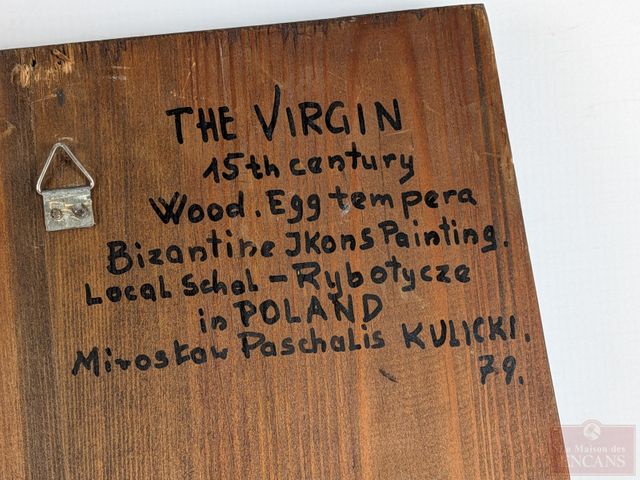 THE VIRGIN
15th century
Wood. Egg tempera
Bizantine Jkons Painting.
Local Schol - Rybotycze
in POLAND
Mirosław Paschalis KULICKI.
79.
La Maison des
ENCANS